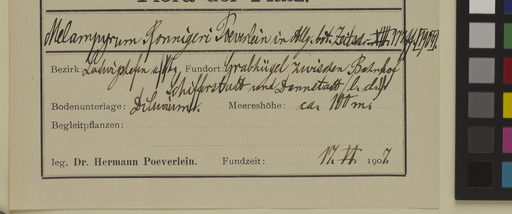 Flora der Pfalz.
Melampyrum Ronnigeri Poeverlein in Allg. bot. Zeitschr. XIII
Bezirk: Ludwigshafen a/Rh, Fundort: Grabhügel zwischen Bahnhof
Schifferstadt und Dannstadt
Bodenunterlage: Diluvium. Meereshöhe: ca. 100 m.
Begleitpflanzen:
leg. Dr. Hermann Poeverlein. Fundzeit: 17. VI. 1907.